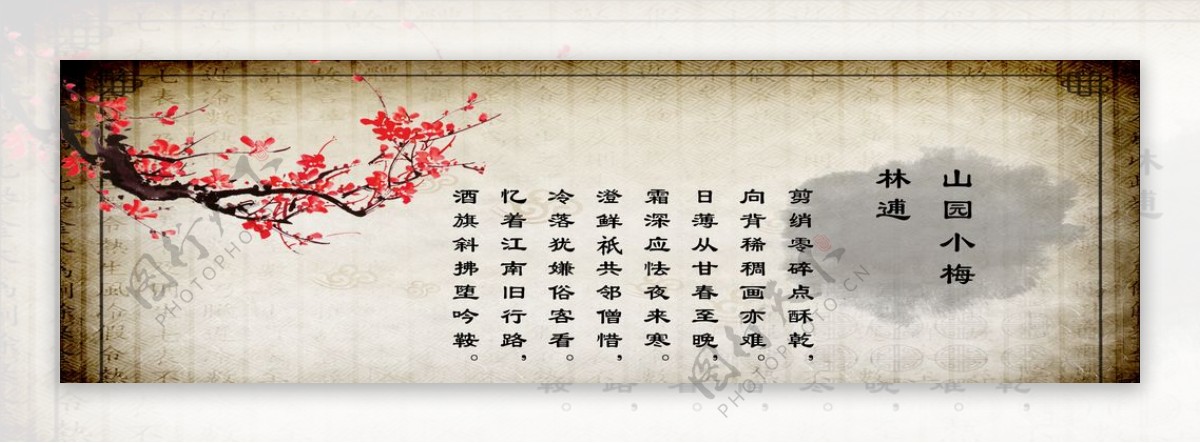 山园小梅
林逋
剪绡零碎点酥乾，
向背稀稠画亦难。
日薄从甘春至晚，
霜深应怯夜来寒。
澄鲜祇共邻僧惜，
冷落犹嫌俗客看。
忆着江南旧行路，
酒旗斜拂堕吟鞍。